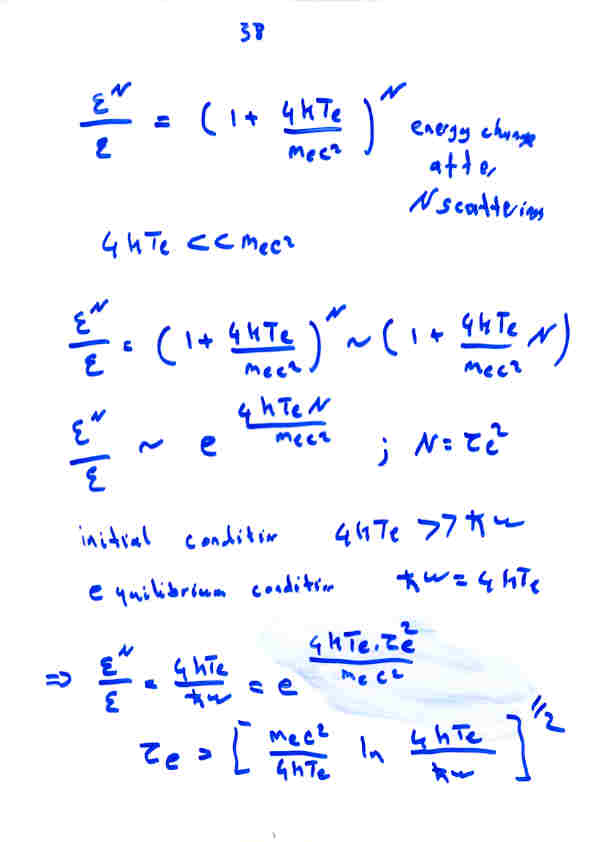 38
ε^N/ε = (1 + 4kTe/mec²)^N energy change
after
N scatterings
4kTe << mec²
ε^N/ε = (1 + 4kTe/mec²)^N ~ (1 + 4kTe/mec² N)
ε^N/ε ~ e^(4kTeN/mec²) ; N = τe²
initial condition 4kTe >> ħω
equilibrium condition ħω = 4kTe
⇒ ε^N/ε = 4kTe/ħω = e^(4kTe.τe²/mec²)
τe = [mec²/4kTe ln 4kTe/ħω]^1/2